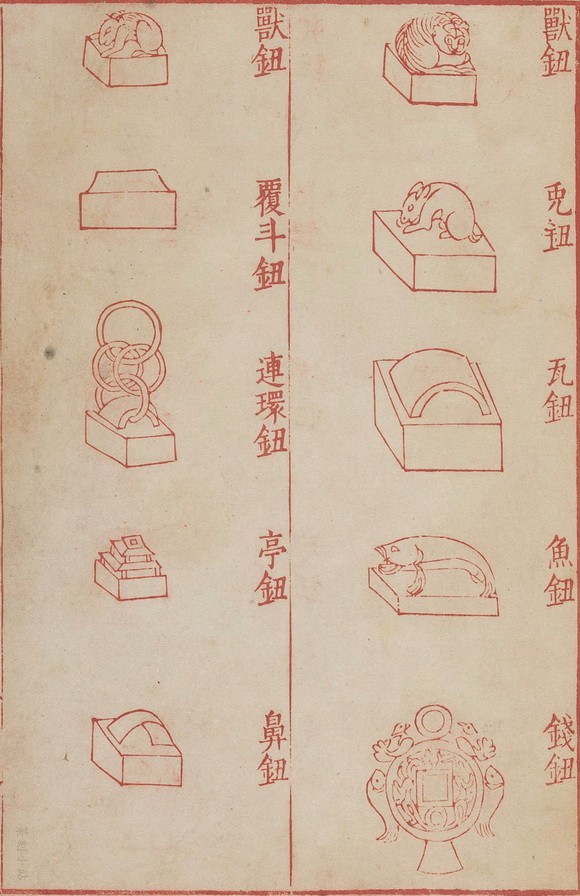 獸鈕
兎鈕
瓦鈕
魚鈕
錢鈕
獸鈕
覆斗鈕
連環鈕
亭鈕
鼻鈕